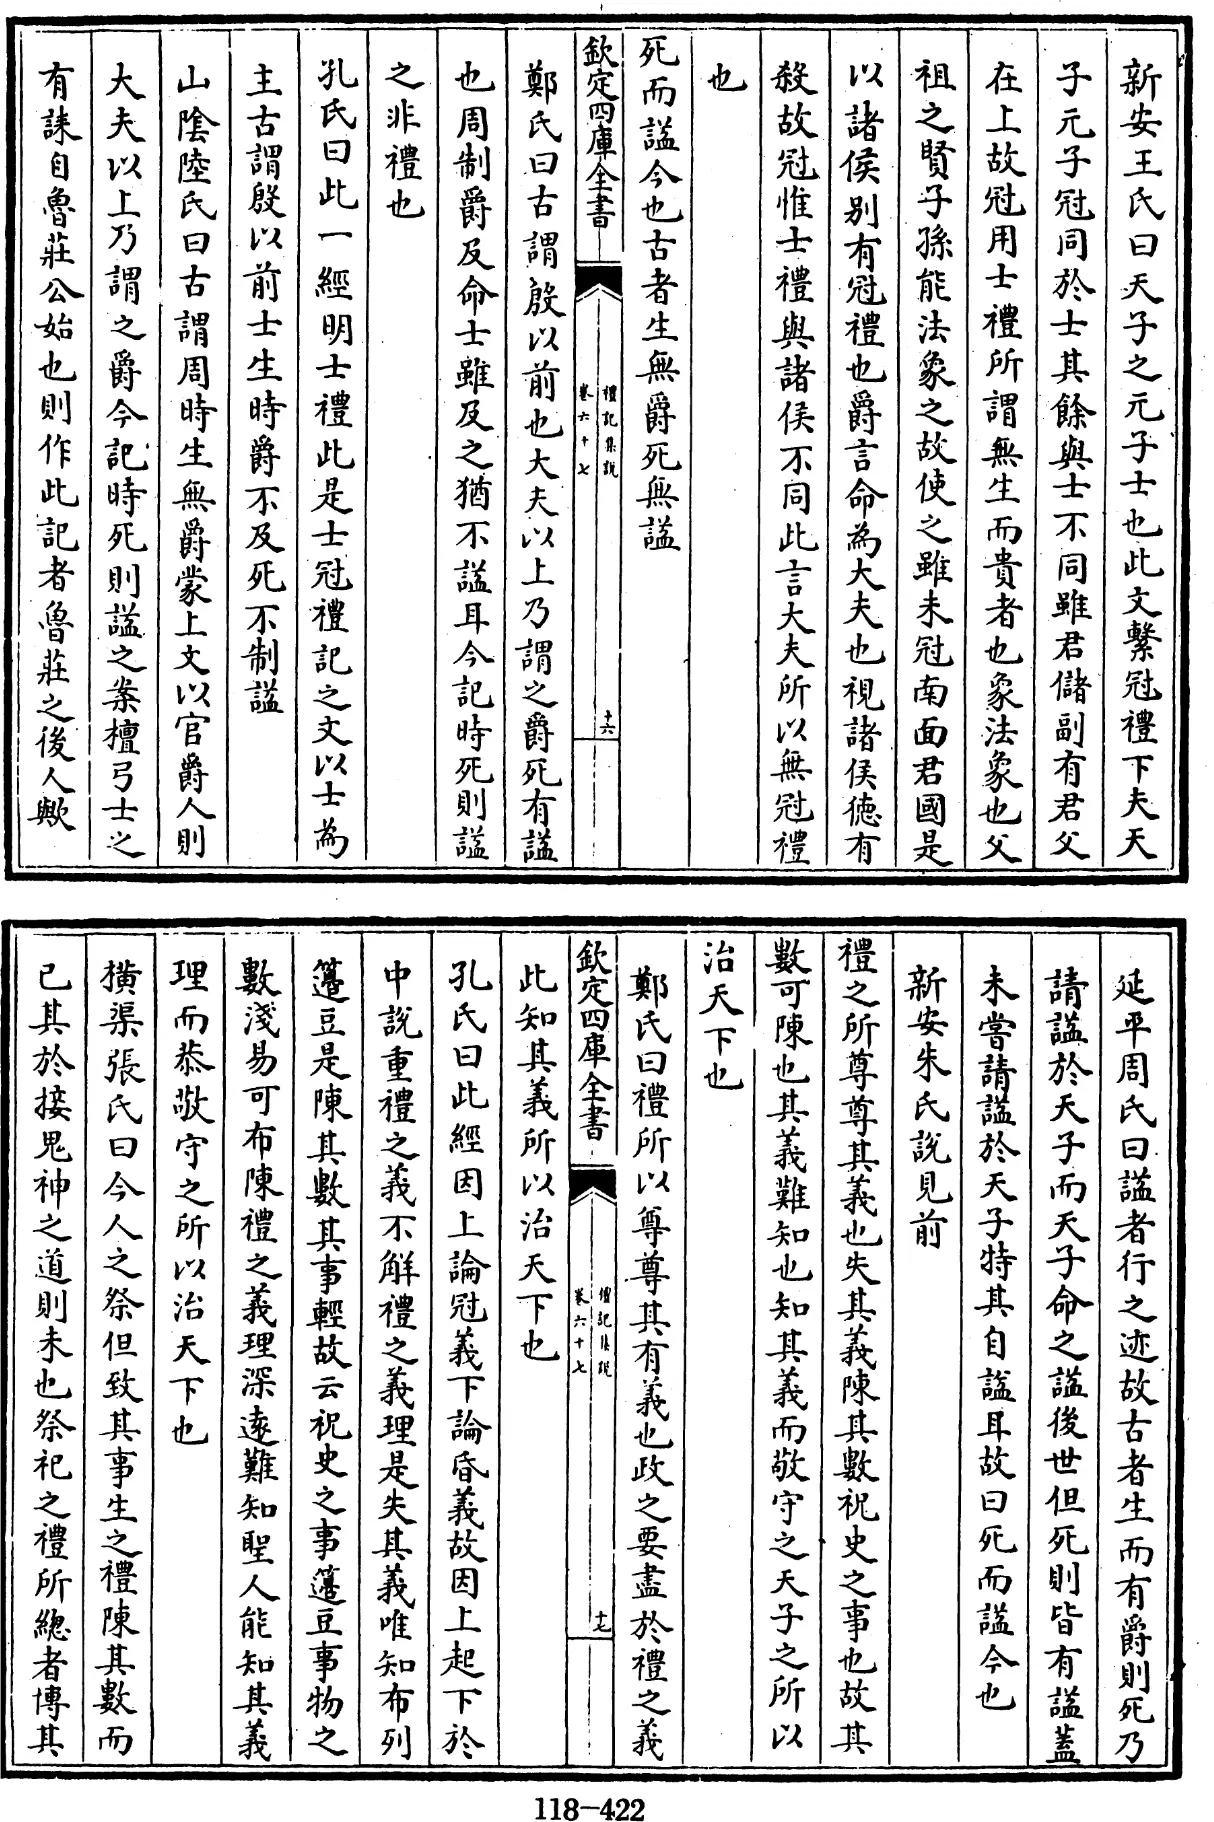 新安王氏曰天子之元子士也此文繫冠禮下夫天
子元子冠同於士其餘與士不同雖君儲副有君父
在上故冠用士禮所謂無生而貴者也象法象也父
祖之賢子孫能法象之故使之雖未冠南面君國是
以諸侯别有冠禮也爵言命為大夫也視諸侯徳有
殺故冠惟士禮與諸侯不同此言大夫所以無冠禮
也
死而諡今也古者生無爵死無諡
欽定四庫全書
禮記集說
卷六十七
十六
鄭氏曰古謂殷以前也大夫以上乃謂之爵死有諡
也周制爵及命士雖及之猶不諡耳今記時死則諡
之非禮也
孔氏曰此一經明士禮此是士冠禮記之文以士為
主古謂殷以前士生時爵不及死不制諡
山隂陸氏曰古謂周時生無爵蒙上文以官爵人則
大夫以上乃謂之爵今記時死則諡之案檀弓士之
有誄自魯莊公始也則作此記者魯莊之後人歟
延平周氏曰諡者行之迹故古者生而有爵則死乃
請諡於天子而天子命之諡後世但死則皆有諡蓋
未嘗請諡於天子特其自諡耳故曰死而諡今也
新安朱氏說見前
禮之所尊尊其義也失其義陳其數祝史之事也故其
數可陳也其義難知也知其義而敬守之天子之所以
治天下也
鄭氏曰禮所以尊尊其有義也政之要盡於禮之義
欽定四庫全書
禮記集說
卷六十七
十七
此知其義所以治天下也
孔氏曰此經因上論冠義下論昏義故因上起下於
中說重禮之義不解禮之義理是失其義唯知布列
籩豆是陳其數其事輕故云祝史之事籩豆事物之
數淺易可布陳禮之義理深逺難知聖人能知其義
理而恭敬守之所以治天下也
横渠張氏曰今人之祭但致其事生之禮陳其數而
已其於接鬼神之道則未也祭祀之禮所緫者博其
118-422